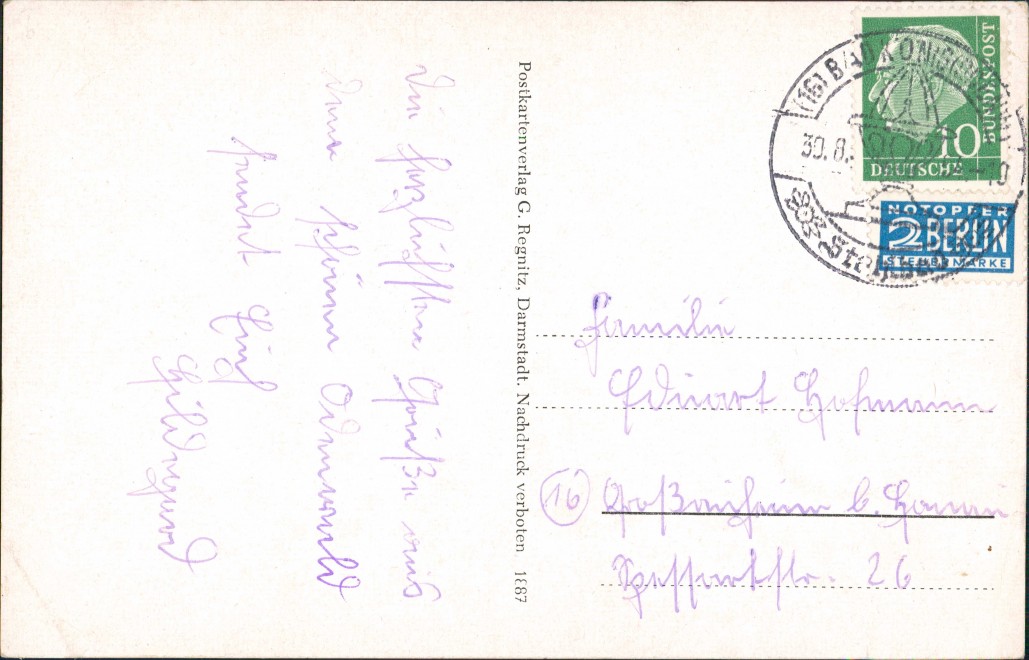 Die herzlichsten Grüße aus
dem schönen Odenwald
sendet Euch
Hildegard
Postkartenverlag G. Regnitz, Darmstadt. Nachdruck verboten 1887
(16) BAD KÖNIG
30.8.
-10
BUNDESPOST
10
DEUTSCHE
NOTOPFER
2 BERLIN
STEUERMARKE
Familie
Eduart Hofmann
(16) Großauheim b. Hanau
Spessartstr. 26